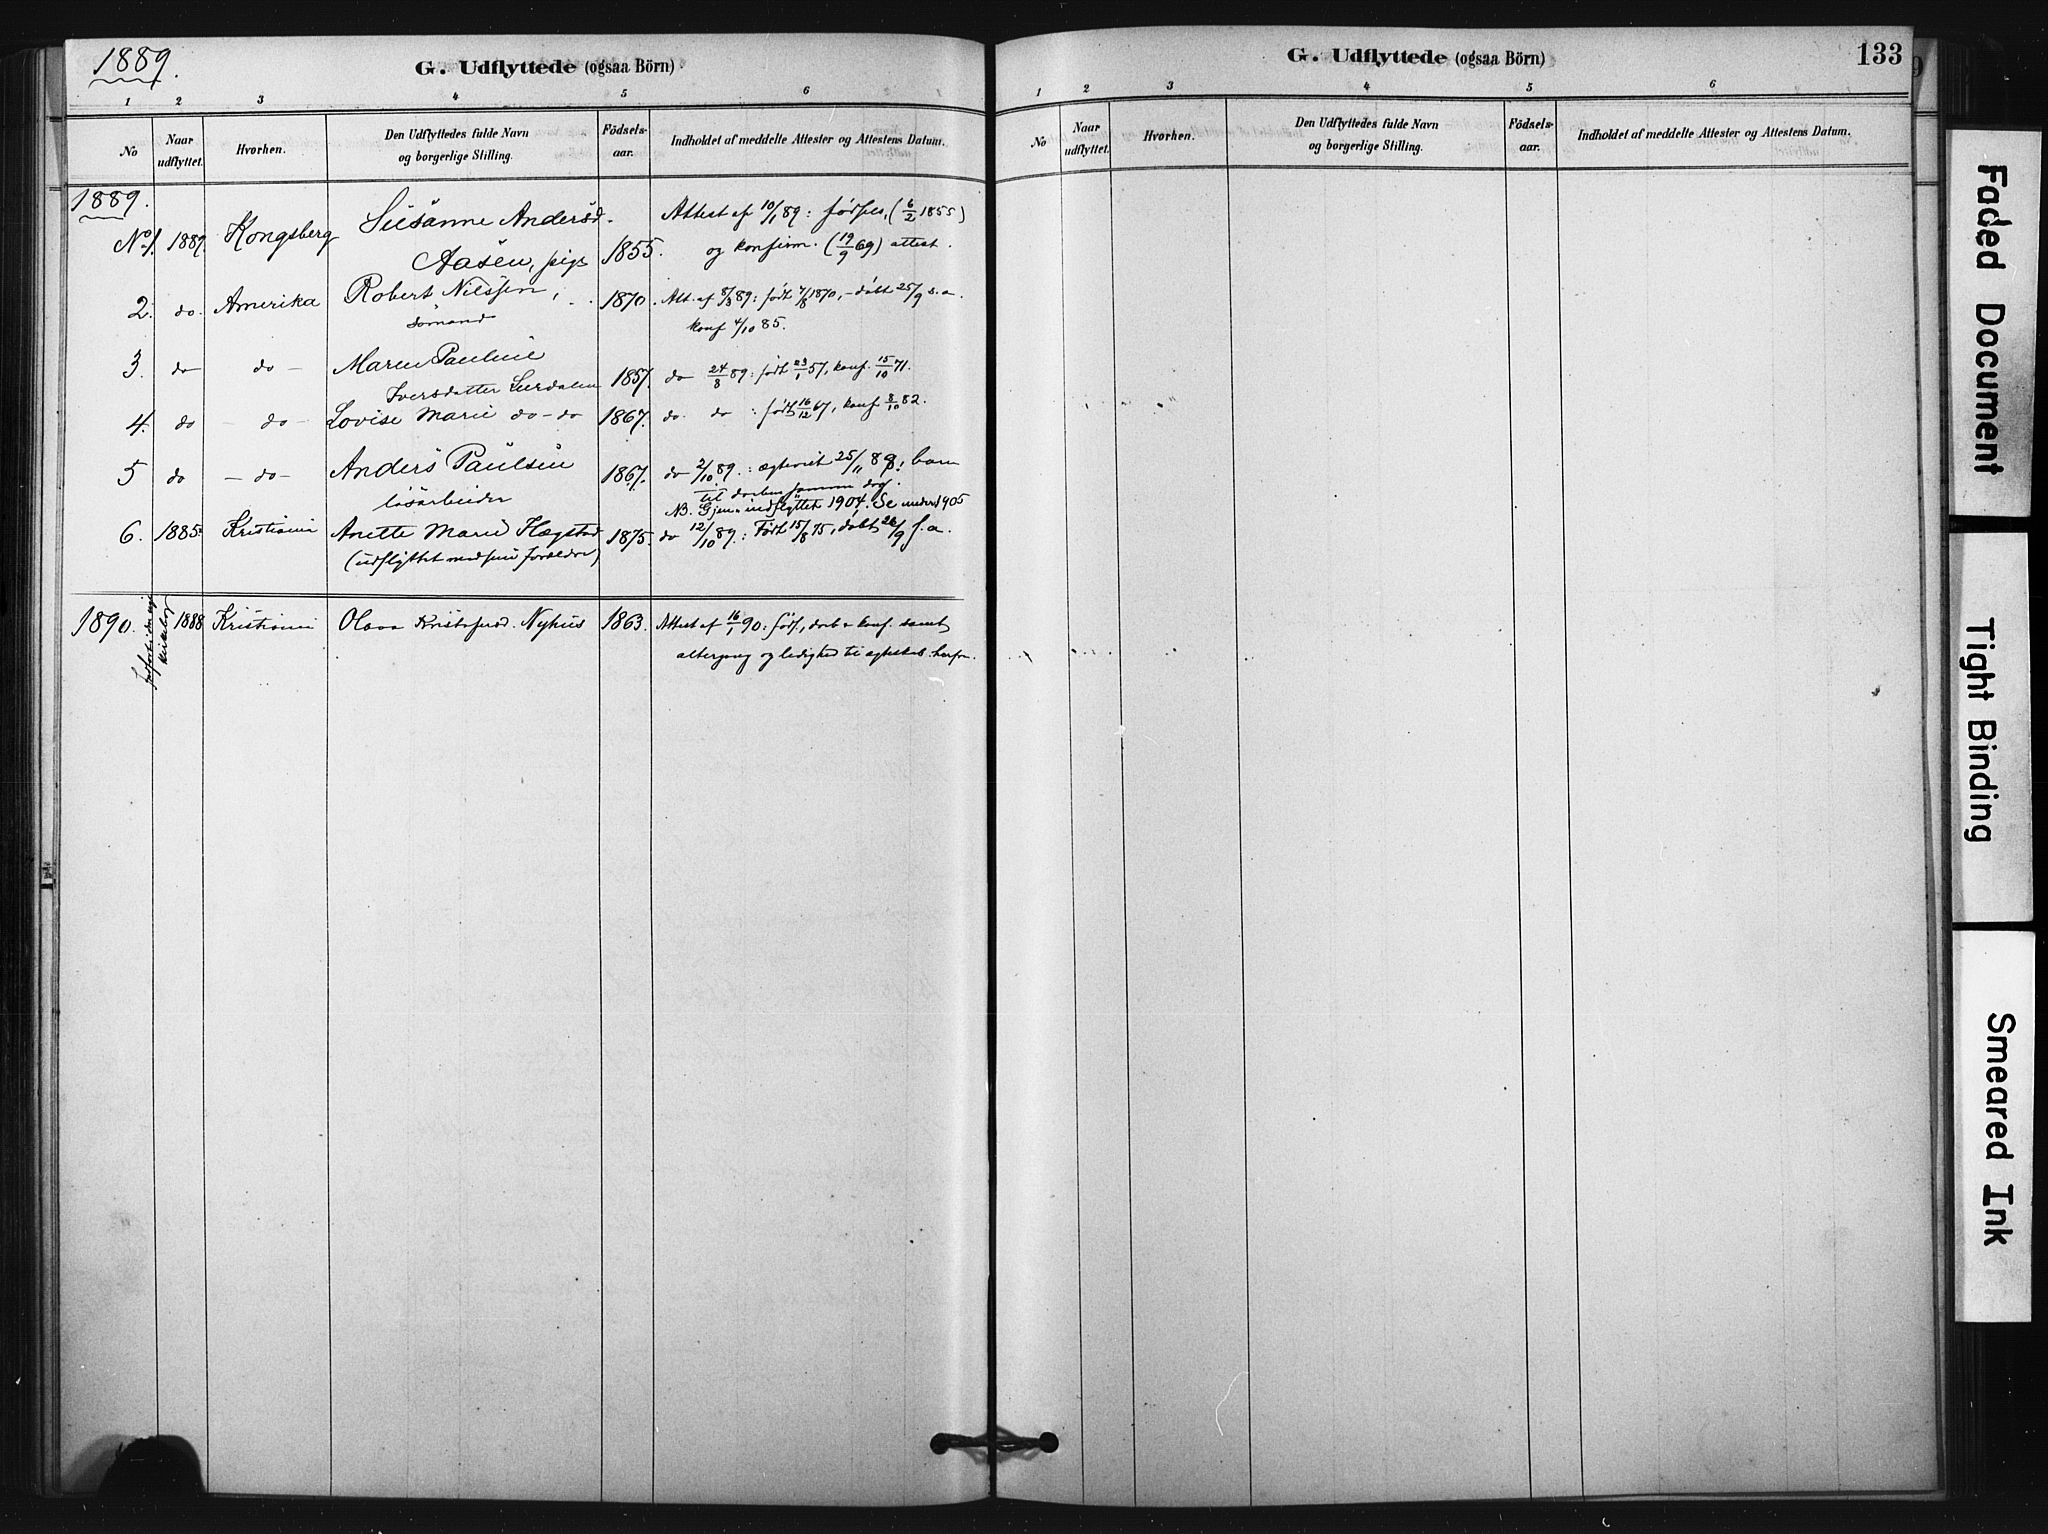 1889.
G. Udflyttede (ogsaa Börn)
1 2 3 4 5 6
No
Naar udflyttet.
Hvorhen.
Den Udflyttedes fulde Navn og borgerlige Stilling.
Födsels-aar.
Indholdet af meddelte Attester og Attestens Datum.
1889.
No 1. 1889. Kongsberg Susanne Andersd. Aasen, pige 1855. Attest af 10/1 89: fødsels, (6/2 1855)
og konfirm. (19/9 69) attest.
2. do. Amerika Robert Nilssen, 1870. Att. af 8/3 89: født 4/8 1870, - døbt 25/9 s. a.
sømand konf 4/10 85.
3. do do - Maren Pauline
Iversdatter Lerdalen 1857. do 24/8 89: født 23/1 57, konf. 15/10 71.
4. do - do - Lovise Marie do - do 1867. do. do : født 16/12 67, konf 8/10 82.
5 do - do - Anders Paulsen 1867. do 2/10 89. : ægteviet 25/11 88; barn
løsarbeider til daaben samme dag.
NB. Gjen-indflyttet 1904. Se under 1905
6. 1885. Kristiania Anette Marie Hægstad 1875. do 12/10 89. : Født 15/8 75, døbt 26/9 s. a.
(udflyttet med sine forældre)
1890. 1888 Kristiania Olava Kristofersd. Nyhus 1863. Attest af 16/1 90: føds., daab & konf. samt
altergang og ledighed til ægteskab herfra.
kirkebog
G. Udflyttede (ogsaa Börn)
133
1 2 3 4 5 6
No
Naar udflyttet.
Hvorhen.
Den Udflyttedes fulde Navn og borgerlige Stilling.
Födsels-aar.
Indholdet af meddelte Attester og Attestens Datum.
Faded Document
Tight Binding
Smeared Ink